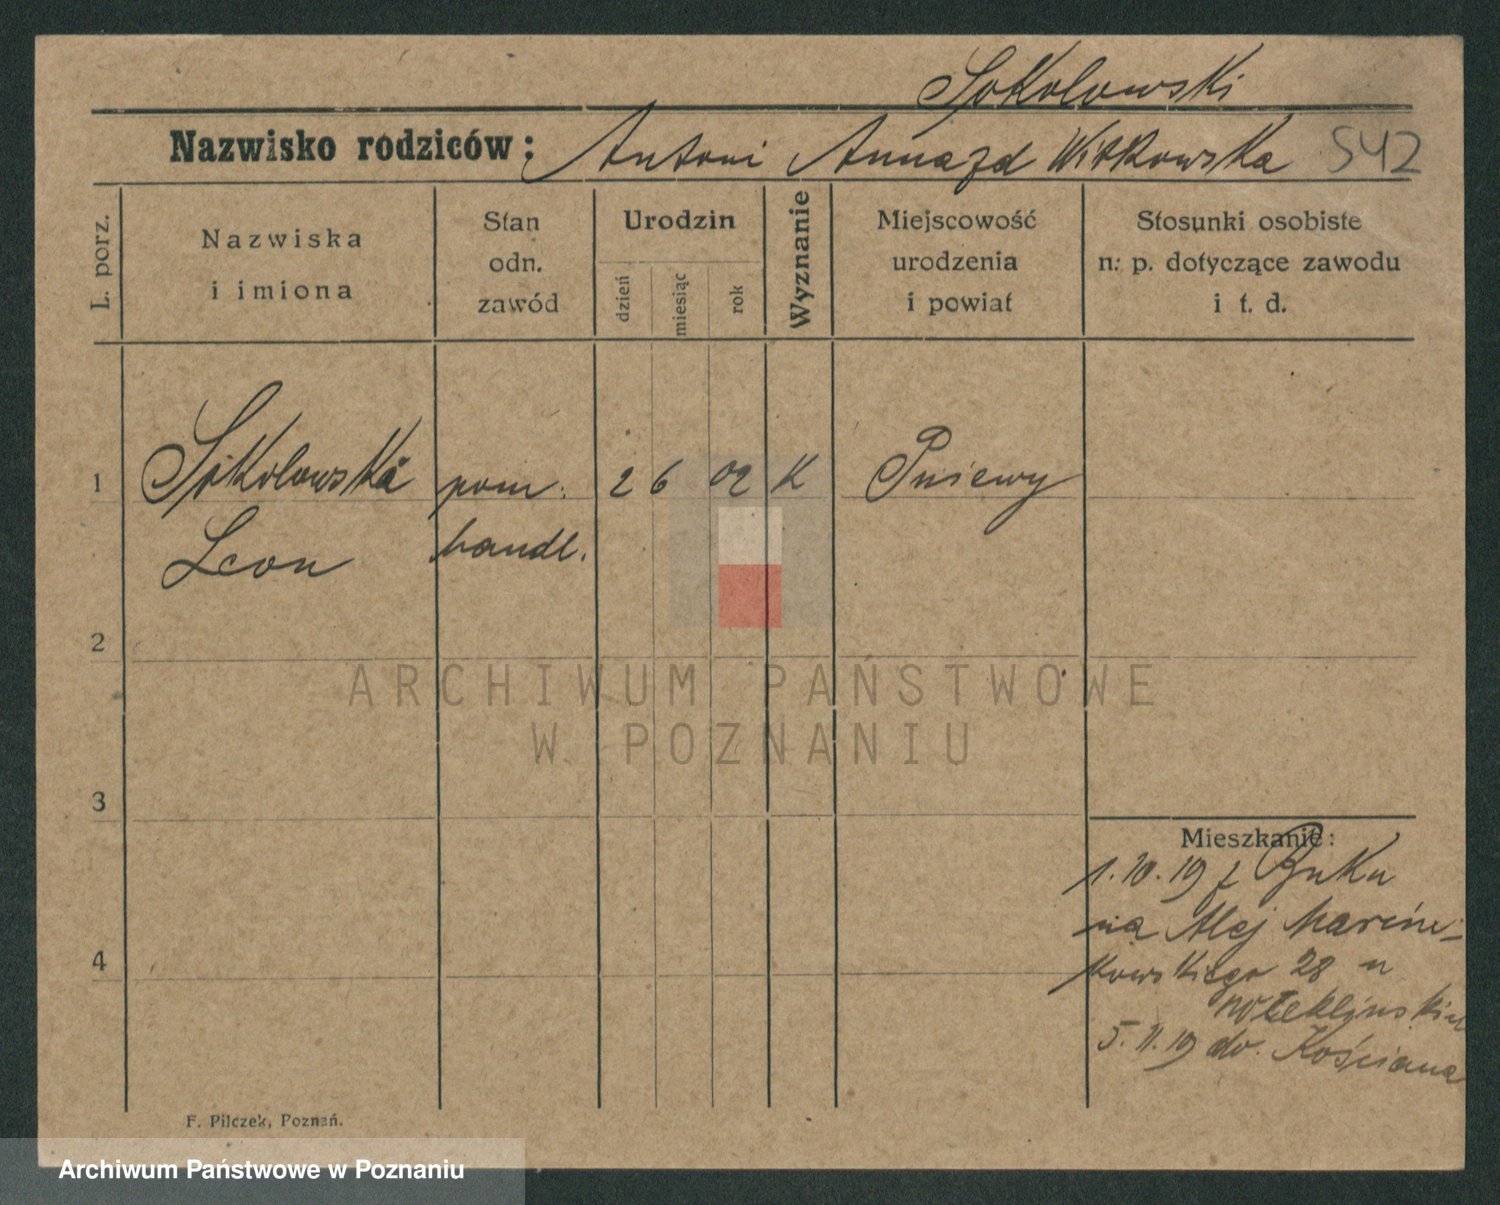 Sokolowski
Nazwisko rodziców: Antoni Anna zd Witkowska 542
L. porz.
Nazwiska
i imiona
Stan
odn.
zawód
Urodzin
dzień
miesiąc
rok
Wyznanie
Miejscowość
urodzenia
i powiat
Stosunki osobiste
n: p. dotyczące zawodu
i t. d.
1 Sokolowski pom. 2 6 02 K Pniewy
Leon handl.
2
ARCHIWUM PAŃSTWOWE
W POZNANIU
3
Mieszkanie:
1.10.19 z Buku
na Alej Marcin-
4
kowskiego 28 u
5.11.19 do Kościana
F. Pilczek, Poznań.
Archiwum Państwowe w Poznaniu